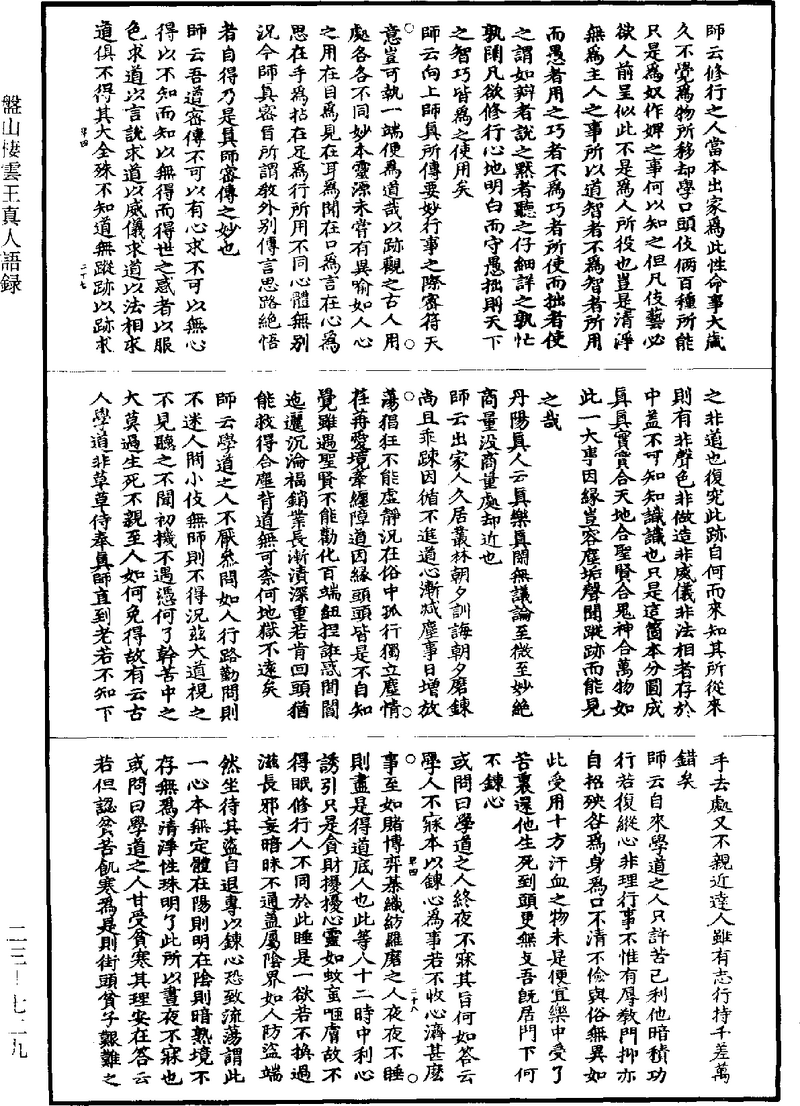 師云修行之人當本出家爲此性命事大歲
久不覺爲物所移却學口頭伎倆百種所能
只是爲奴作婢之事何以知之但凡伎藝必
欲人前呈似此不是爲人所役也豈是清淨
無爲主人之事所以道智者不爲智者所用
而愚者用之巧者不爲巧者所使而拙者使
之謂如辯者說之黙者聽之仔細詳之孰忙
孰閑凡欲修行心地明白而守愚拙則天下
之智巧皆爲之使用矣
師云向上師真所傳要妙行事之際密符天
意豈可執一端便爲道哉以跡觀之古人用
處各各不同妙本靈源未嘗有異喻如人心
之用在目爲見在耳爲聞在口爲言在心爲
思在手爲拈在足爲行所用不同心體無別
況今師真密旨所謂教外別傳言思路絕悟
者自得乃是真師密傳之妙也
師云吾道密傳不可以有心求不可以無心
得以不知而知以無得而得世之惑者以服
色求道以言說求道以威儀求道以法相求
道俱不得其大全殊不知道無蹤跡以跡求
弟四 二十七
之非道也復究此跡自何而來知其所從來
則有非聲色非做造非威儀非法相者存於
中蓋不可知知識識也只是這箇本分圓成
真真實實合天地合聖賢合鬼神合萬物如
此一大事因緣豈容塵垢聲聞蹤跡而能見
之哉
丹陽真人云真樂真閑無議論至微至妙絕
商量没商量處却近也
師云出家人久居叢林朝夕訓誨朝夕磨鍊
尚且乖踈因循不進道心漸減塵事日增放
蕩猖狂不能虛靜況在俗中孤行獨立塵情
荏苒愛境牽纏障道因緣頭頭皆是不自知
覺雖遇聖賢不能勸化百端紐捏誑惑閭閻
迤邐沉淪福銷業長漸漬深重若肯回頭猶
能救得合塵背道無可柰何地獄不遠矣
師云學道之人不厭叅問如人行路勤問則
不迷人間小伎無師則不得況茲大道視之
不見聽之不聞初機不遇憑何了幹苦中之
大莫過生死不親至人如何免得故有云古
人學道非草草侍奉真師直到老若不知下
手去處又不親近達人雖有志行持千差萬
錯矣
師云自來學道之人只許苦己利他暗積功
行若復縱心非理行事不惟有辱教門抑亦
自招殃咎爲身爲口不清不儉與俗無異如
此受用十方汗血之物未是便宜樂中受了
苦裏還他生死到頭更無支吾旣居門下何
不鍊心
或問曰學道之人終夜不寐其旨何如答云
學人不寐本以鍊心爲事若不收心濟甚麼
弟四 二十八
事至如賭博弈棊織紡羅磨之人夜夜不睡
則盡是得道底人也此等八十二時中利心
誘引只是貪財擾擾心靈如蚊䖟咂膚故不
得眠修行人不同於此睡是一欲若不換過
滋長邪妄暗昧不通蓋屬陰界如人防盜端
然坐待其盜自退專以鍊心恐致流蕩謂此
一心本無定體在陽則明在陰則暗熟境不
存無爲清淨性珠明了此所以晝夜不寐也
或問曰學道之人甘受貧寒其理安在答云
若但認貧苦飢寒爲是則街頭貧子艱難之
盤山棲雲王真人語録
二三—七二九